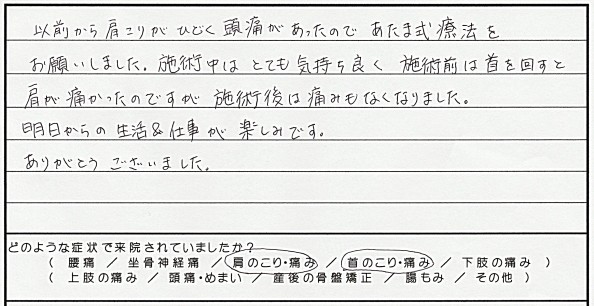 以前から肩こりがひどく頭痛があったので あたま式療法を
お願いしました。施術中は とても気持ち良く 施術前は首を回すと
肩が痛かったのですが 施術後は痛みもなくなりました。
明日からの生活&仕事が 楽しみです。
ありがとう ございました。
どのような症状で来院されていましたか?
( 腰痛 / 坐骨神経痛 / 肩のこり・痛み / 首のこり・痛み / 下肢の痛み )
( 上肢の痛み / 頭痛・めまい / 産後の骨盤矯正 / 腸もみ / その他 )